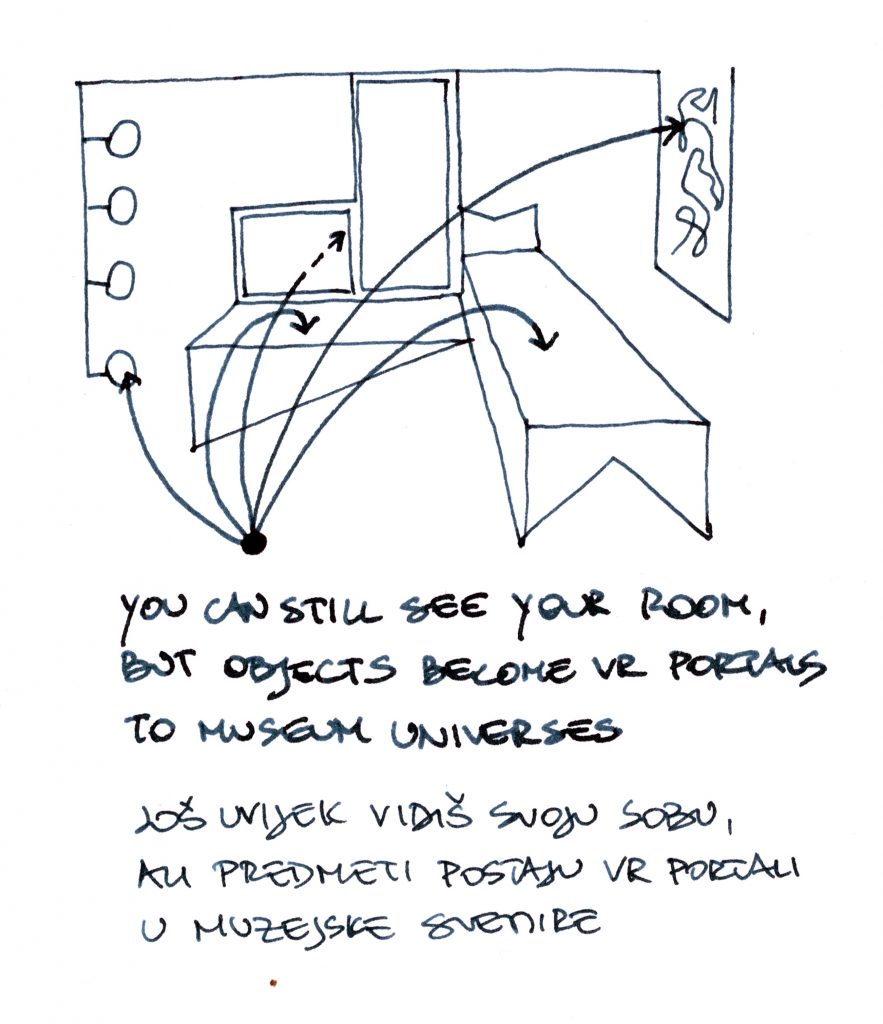 YOU CAN STILL SEE YOUR ROOM,
BUT OBJECTS BECOME VR PORTALS
TO MUSEUM UNIVERSES
JOŠ UVIJEK VIDIŠ SVOJU SOBU,
ALI PREDMETI POSTAJU VR PORTALI
U MUZEJSKE SVEMIRE